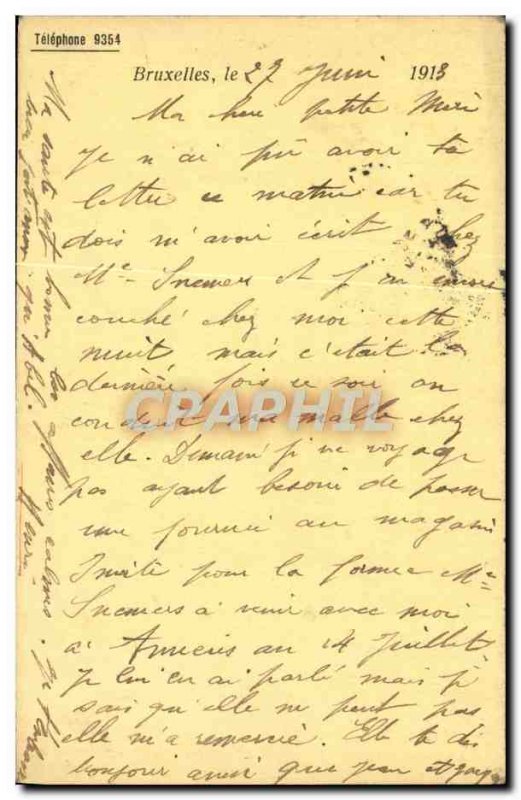 Téléphone 9354
Bruxelles, le 27 Juin 1913
Ma chère petite Meri
Je n'ai pû avoir ta
lettre ce matin car tu
dois m'avoir écrit chez
Me et j'ai encore
couché chez moi cette
nuit mais c'était la
dernière fois ce soir on
conduit ma malle chez
elle. Demain je ne voyage
pas ayant besoin de passer
une journée au magasin
Invite pour la forme Me
à venir avec moi
à Anvers au 14 Juillet
je lui en ai parlé mais je
sais qu'elle ne peut pas
elle m'a remercié. Elle te dis
bonjour ainsi que
Ma santé est bonne les affaires calmes. Je
bien fort mon Abel. Henri
CPAPHIL